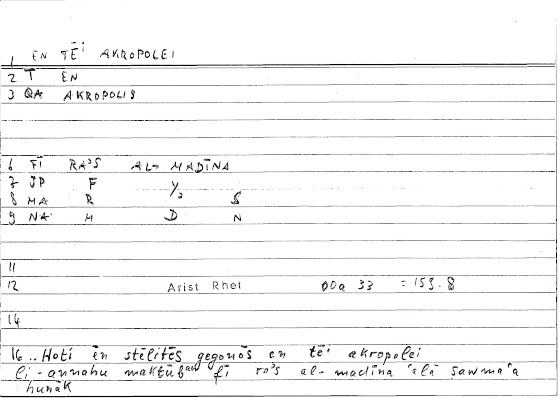 1 EN TĒⁱ AKROPOLEI
2 T EN
3 QA AKROPOLIS
6 FĪ RA'S AL- MADĪNA
7 JP F Y/2
8 MA R S
9 NA M D N
11
12 Arist Rhet 00a 33 = 153.8
14
16 .. Hoti ēn stēlitēs gegonōs en tēⁱ akropolei
li-annahu maktūbᵃⁿ fī ra's al-madīna ʿalā ṣawmaʿa
hunāk